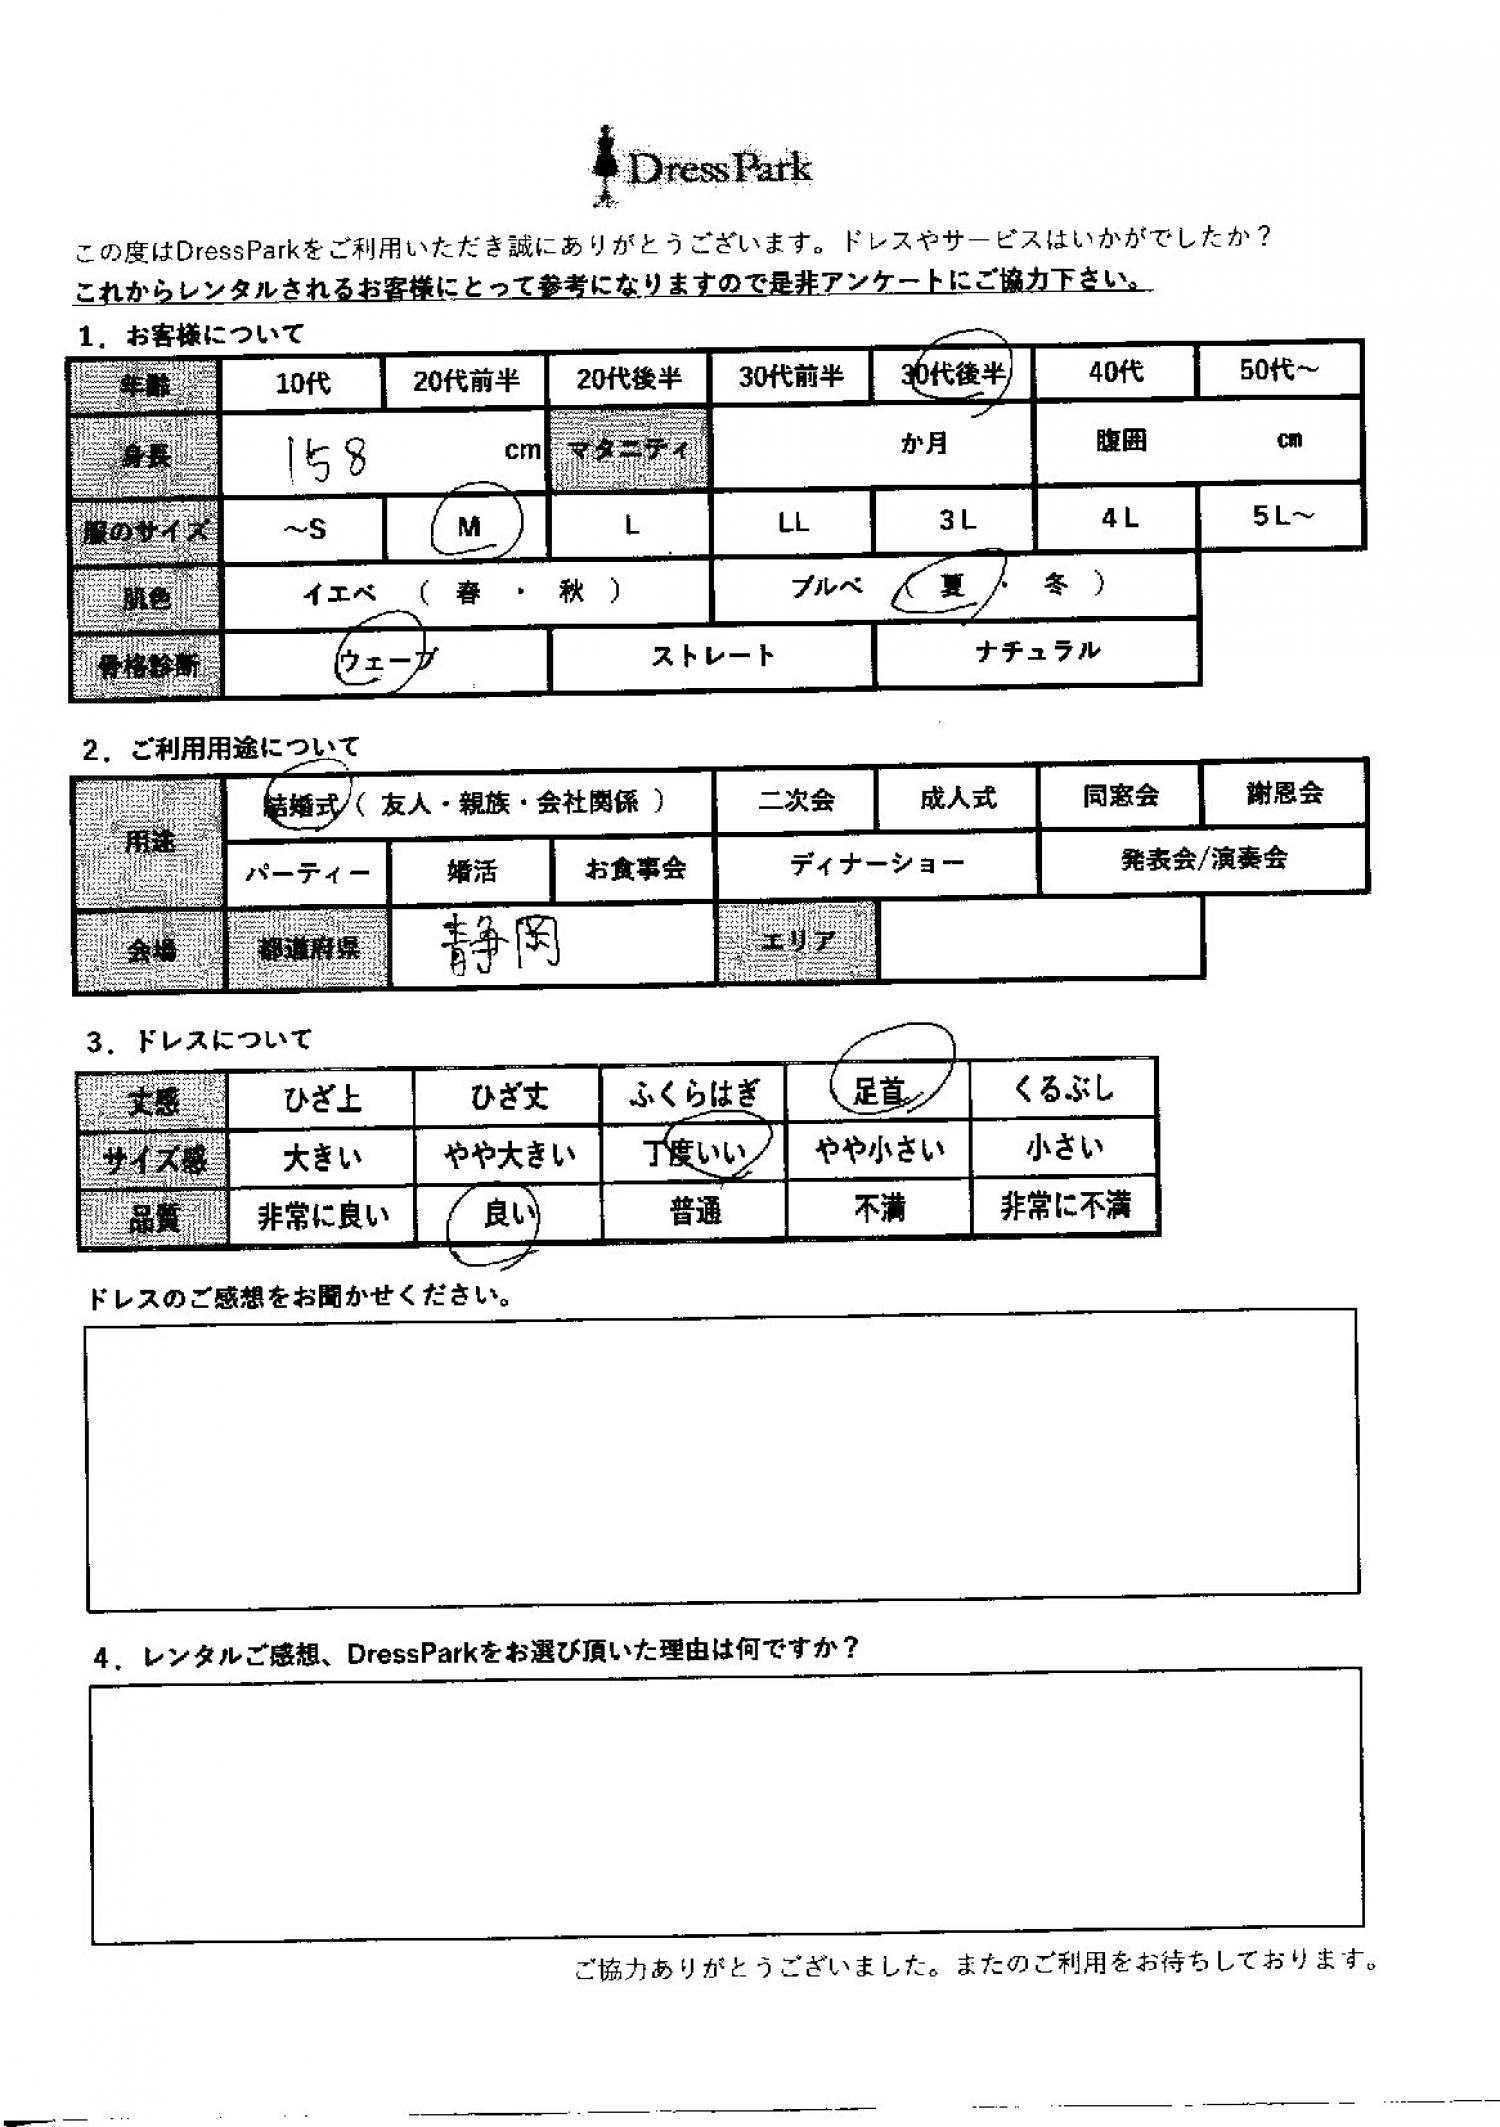 DressPark
この度はDressParkをご利用いただき誠にありがとうございます。ドレスやサービスはいかがでしたか？
これからレンタルされるお客様にとって参考になりますので是非アンケートにご協力下さい。
1．お客様について
年齢 10代 20代前半 20代後半 30代前半 30代後半 40代 50代～
身長 158 cm マタニティ か月 腹囲 cm
服のサイズ ～S M L LL 3L 4L 5L～
肌色 イエベ （ 春 ・ 秋 ） ブルベ （ 夏 ・ 冬 ）
骨格診断 ウェーブ ストレート ナチュラル
2．ご利用用途について
用途 結婚式（ 友人・親族・会社関係 ） 二次会 成人式 同窓会 謝恩会
パーティー 婚活 お食事会 ディナーショー 発表会/演奏会
会場 都道府県 静岡 エリア
3．ドレスについて
丈感 ひざ上 ひざ丈 ふくらはぎ 足首 くるぶし
サイズ感 大きい やや大きい 丁度いい やや小さい 小さい
品質 非常に良い 良い 普通 不満 非常に不満
ドレスのご感想をお聞かせください。
4．レンタルご感想、DressParkをお選び頂いた理由は何ですか？
ご協力ありがとうございました。またのご利用をお待ちしております。